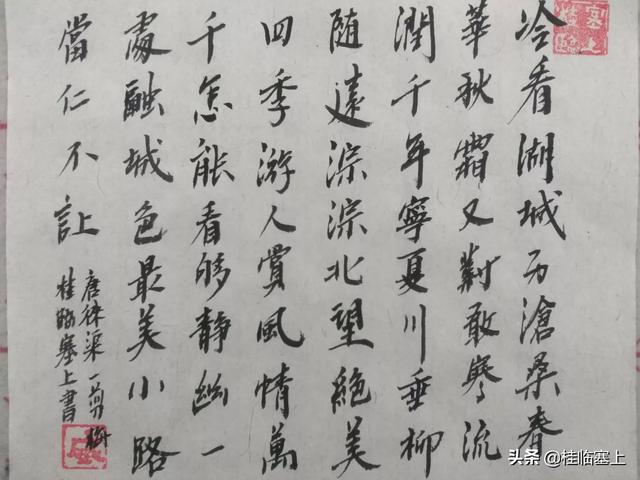 冷看湖城历滄桑春
華秋霜又敢寒流
潤千年寧夏川垂柳
随遠淙淙北望絕美
四季游人賞風情萬
千怎能看够靜幽一
處融城色最美小路
當仁不让
唐徕渠一剪梅
桂臨塞上書
塞上桂臨
头条 @桂临塞上